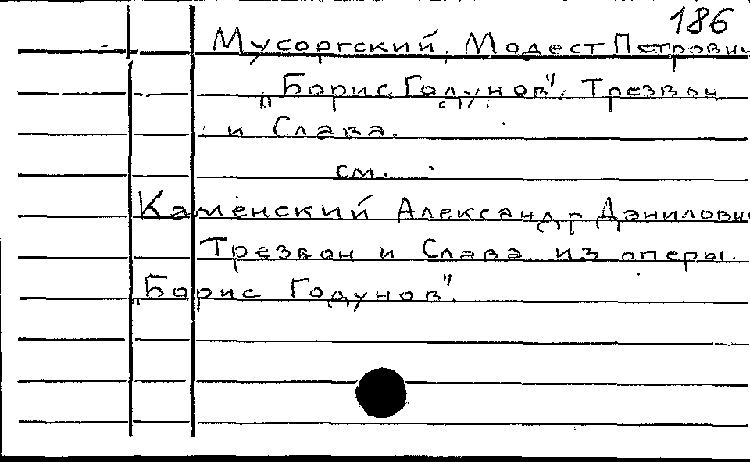 186
Мусоргский, Модест Петрович
„Борис Годунов". Трезвон
и Слава.
см.
Каменский Александр Данилович
Трезвон и Слава из оперы
„Борис Годунов".